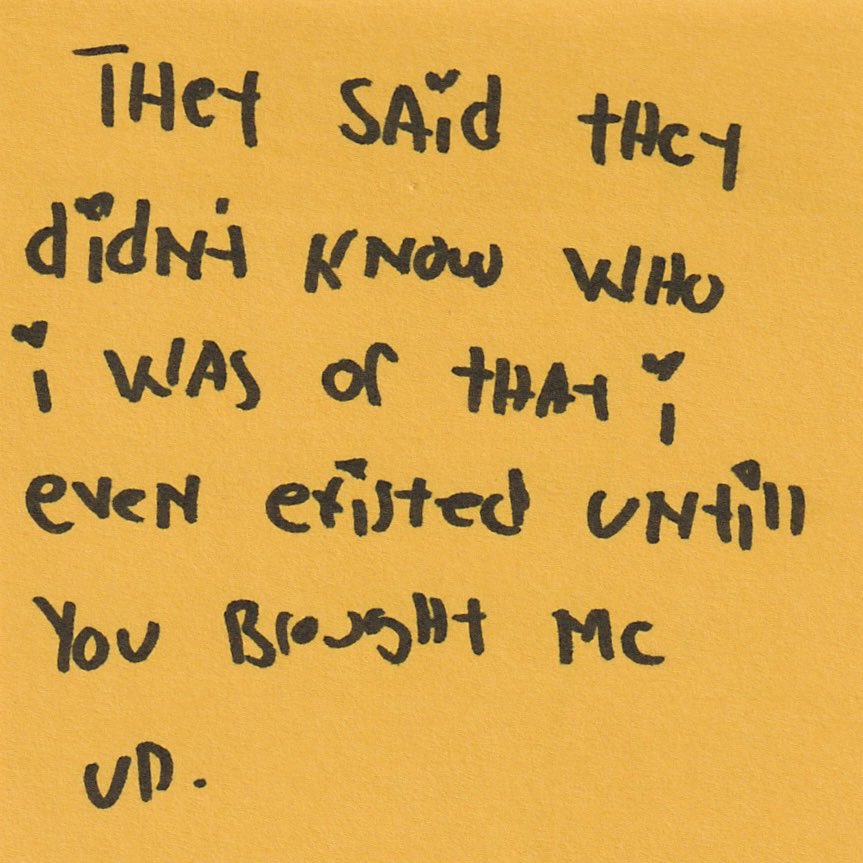 THey SAid they
didn't know who
i was or that i
even existed untill
you Brought me
up.